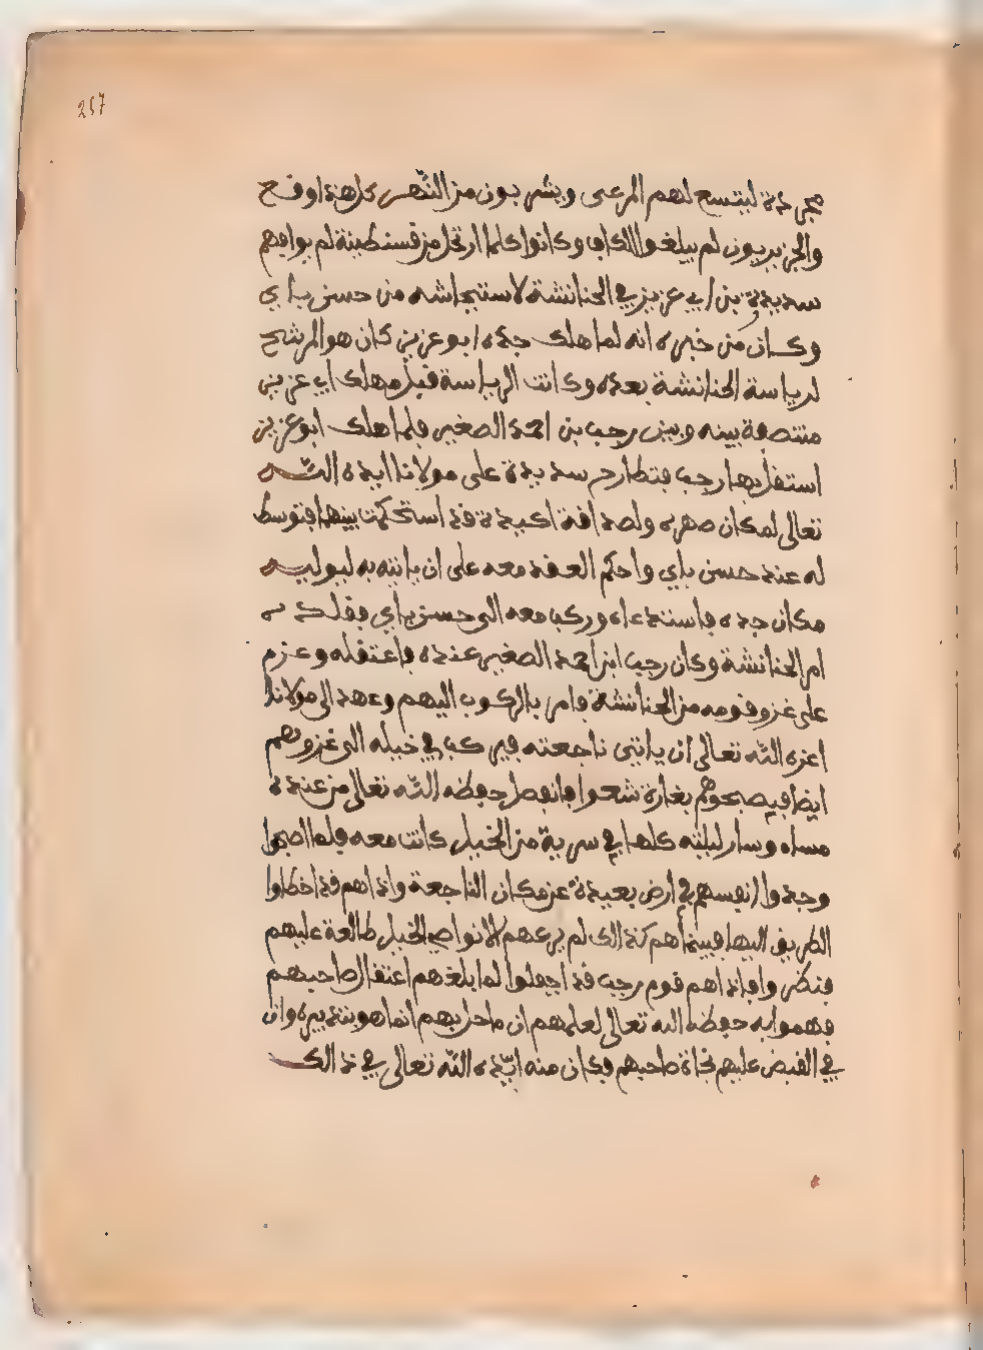 257
مجردة ليتسع لهم المرعى ويشربون من النهر كل هذا وقع
والجزيريون لم يبلغوا الكاف وكانوا كلما ارتحل من قسنطينة لم يوافهم
سديدة بن ابي عزيز في الحنانشة لاستيحاشه من حسن باي
وكان من خبره انه لما هلك جده ابو عزيز كان هو المرشح
لرياسة الحنانشة بعده وكانت الرياسة قبل مهلك ابي عزيز
منتصفة بينه وبين رجب بن احمد الصغير فلما هلك ابو عزيز
استقل بها رجب فتطارح سديدة على مولانا ايده الله
تعالى لمكان صهره ولصداقة اكيدة قد استحكمت بينهما فتوسط
له عند حسن باي واحكم العقد معه على ان ياتيه به ليوليه
مكان جده فاستدعاه وركب معه الى حسن باي فقلده
امر الحنانشة وكان رجب ابن احمد الصغير عنده فاعتقله وعزم
على غزو قومه من الحنانشة فامر بالركوب اليهم وعهد الى مولانا
اعزه الله تعالى ان ياتي ناجعته فيركب في خيله الى غزوهم
ايضا فيصبحوهم بغارة شعوا فانفصل حفظه الله تعالى من عنده
مساء وسار ليلته كلها في سرية من الخيل كانت معه فلما اصبحوا
وجدوا انفسهم في ارض بعيدة عن مكان الناجعة واذا هم قد اخطاوا
الطريق اليها فبينما هم كذالك لم يرعهم الا نواصي الخيل طالعة عليهم
فنظروا فاذا هم قوم رجب قد اجفلوا لما بلغهم اعتقال صاحبهم
فهموا به حفظه الله تعالى لعلمهم ان ما حل بهم انما هو بتدبيره وان
في القبض عليهم نجاة صاحبهم فكان منه ايده الله تعالى في ذالك